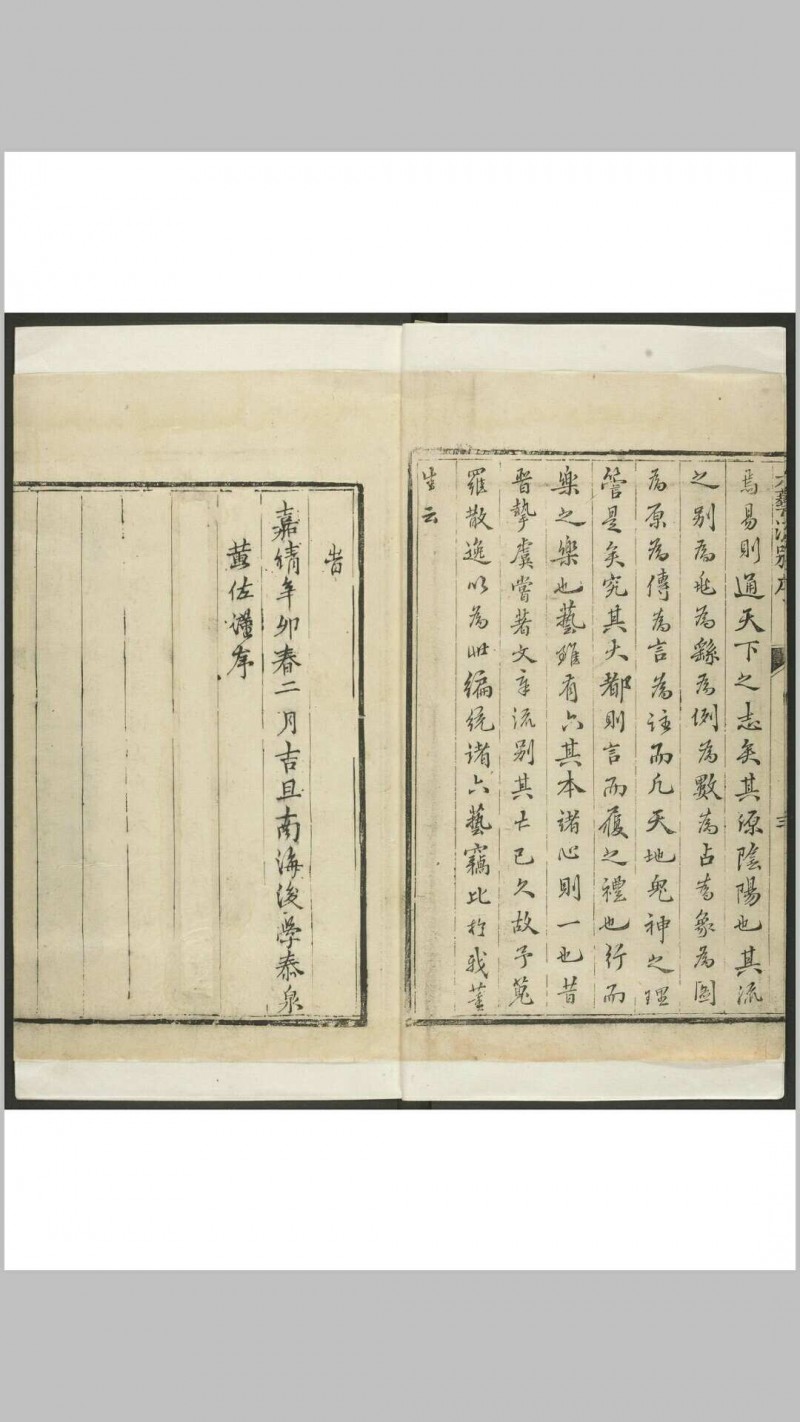 焉易則通天下之志矣其源陰陽也其流
之別為兆為繇為例為數為占為象為圖
為原為傳為言為註而凡天地鬼神之理
管是矣究其大都則言而履之禮也行而
樂之樂也藝雖有六其本諸心則一也昔
晉摯虞嘗著文章流別其亡已久故予蒐
羅散逸以為此編統諸六藝竊比於我董
生云
嘉靖辛卯春二月吉旦南海後學泰泉
黃佐謹序